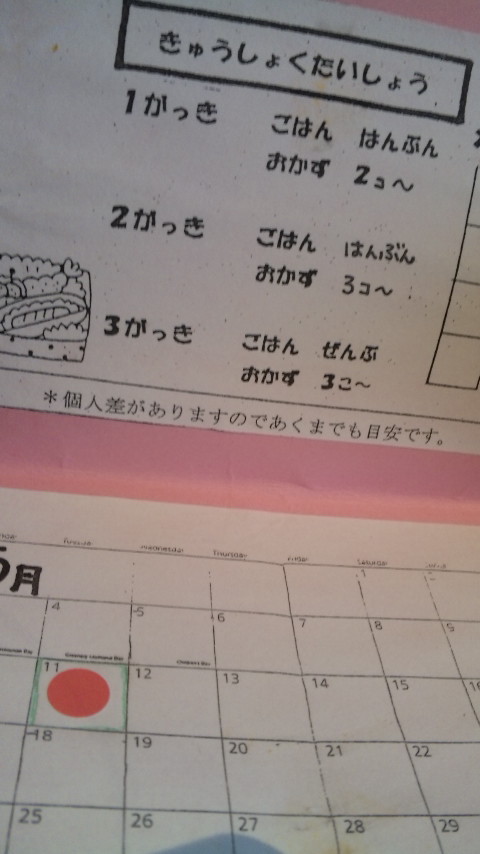 きゅうしょくたいしょう
1がっき ごはん はんぶん
おかず 2コ〜
2がっき ごはん はんぶん
おかず 3コ〜
3がっき ごはん ぜんぶ
おかず 3こ〜
＊個人差がありますのであくまでも目安です。
Wednesday Thursday Saturday
月
1
4 5 6 7 8 9
11 12 13 14 15 16
18 19 20 21 22
25 26 27 28 29